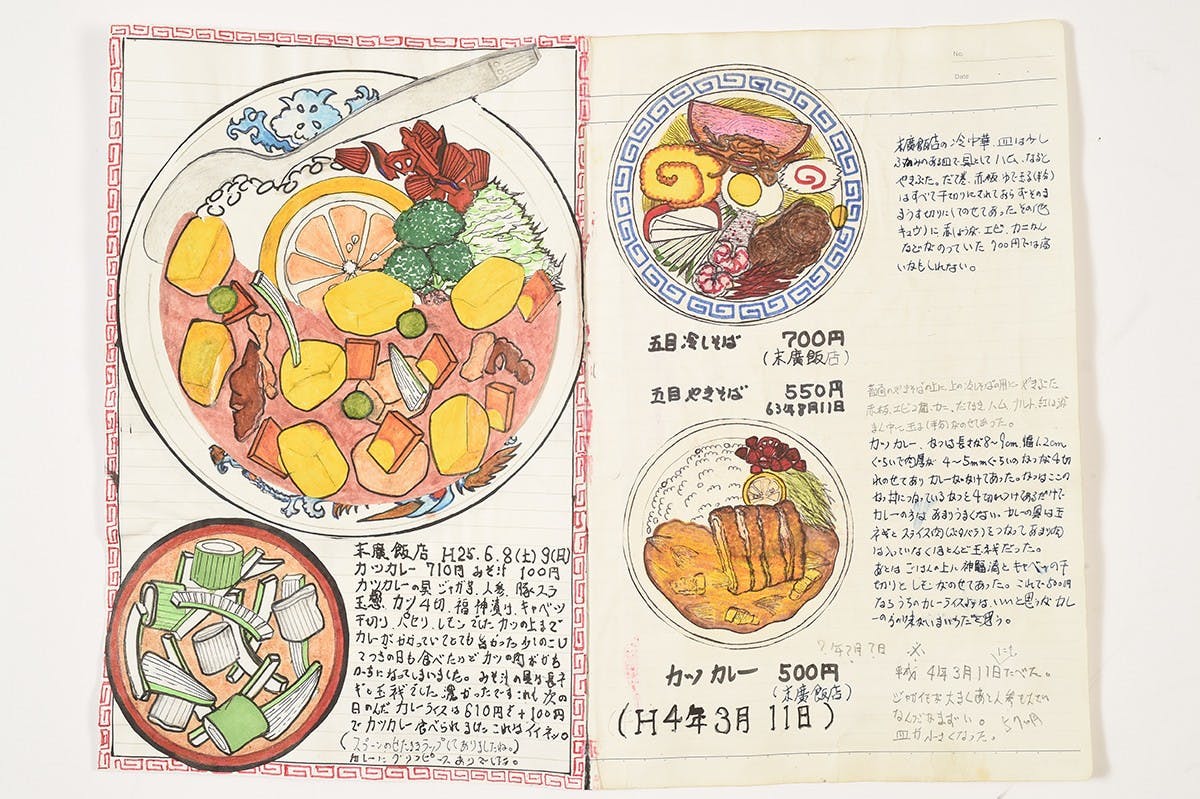 末廣飯店 H25.6.8(土)9(日)
カツカレー 710円 みそ汁 100円
カツカレーの具 ジャガ芋、人参、豚スラ
玉葱、カツ4切、福神漬け、キャベツ
千切り、パセリ、レモンでした カツの上まで
カレーがかかっていてとても旨かった 少しのこし
てつぎの日も食べたけどカツの肉がかた
かたになってしまいました。みそ汁の具は長ネ
ギと玉葱でした 濃かったです これも次の
日のんだ カレーライスは610円で+100円
でカツカレー食べられました これはイイネッ。
(スプーンのせたままラップしてありましたね。)
カレーにグリンピースありでしたよ。
No.
Date
末廣飯店の冷中華 皿は少し
深みのある皿で具として ハム、なると
やきぶた。だて巻、赤板 ゆで玉子(半分)
はすべて千切りにされておらずそのま
まうす切りにしてのせてあった その他
キュウリに 紅しょうが、エビ、カニカん
などがのっていた 700円では高
いかもしれない。
五目冷しそば 700円
(末廣飯店)
五目やきそば 550円
63年8月11日
普通のやきそばの上に上の冷しそばの用にやきぶた
赤板、エビ2箇、カニ、だてまき、ハム、ナルト、紅しょうが
まん中に玉子(半分)がのせてあった。
カツカレー、かつは長さが8〜9cm、幅1.2cm
ぐらいで肉厚が4〜5mmぐらいのカツが4切
れのせてありカレーがかけてあった。かつはここの
かつ丼になっているかつと4切れつけてあるだけで
カレーのほうはあまりうまくない。カレーの具は玉
ネギとスライス肉(ぶたバラ)をつかってあまり肉
は入っていなくほとんど玉葱だった。
あとはごはんの上に神福漬とキャベツの千
切りとレモンがのせてあった。これで500円
ならうちのカレーライスよりはいいと思うが カレ
ーのほうの味がいまいちだと思う。
カツカレー 500円
(末廣飯店)
(H4年3月11日)
7年7月7日
平成 4年3月11日にもたべた。
ジャガイモが大きくあと人参も入てい
なんだかまずい。 570円
皿が小さくなった。